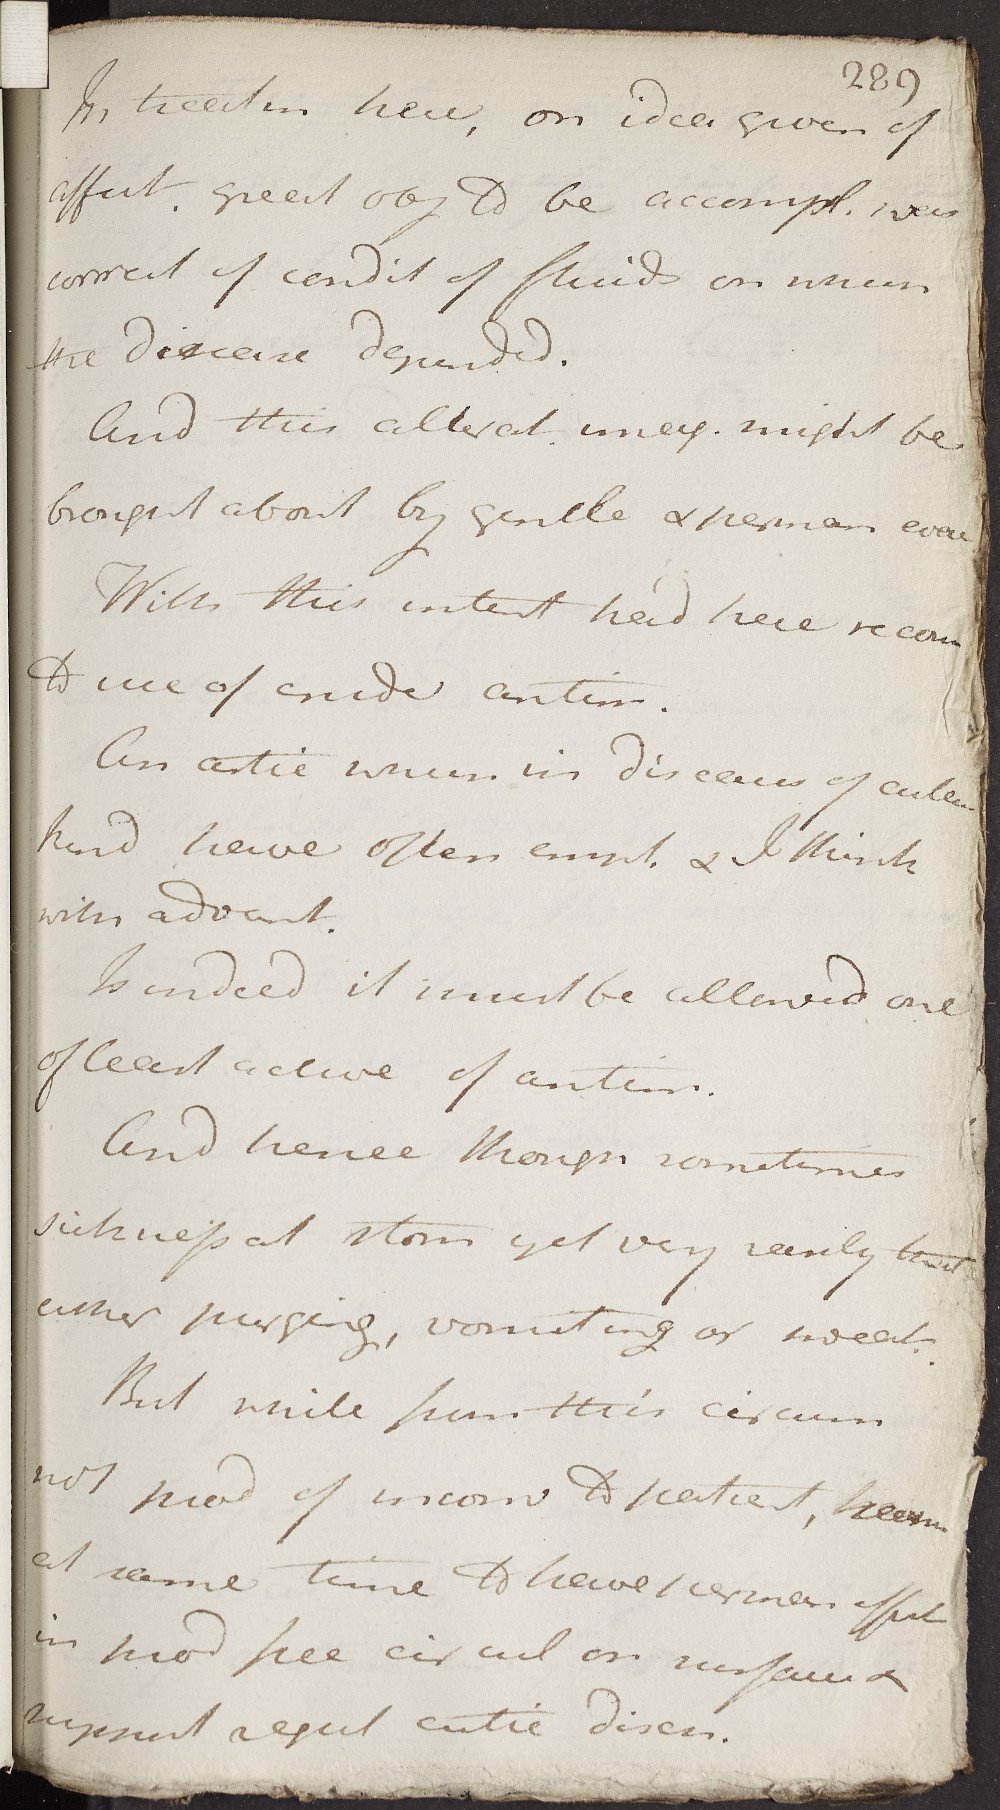 289
In treatm here, on idea given of
affect. great obj to be accompl. was
correct of condit of fluids on whm
the Disease depended.
And this alterat. imag. might be
brought about by gentle & perman evac
With this intent had here recom
to use of crude antim.
An artic whm in diseases of cutan
kind have often empl. & I think
with advant.
Is indeed it must be allowed one
of least active of antim.
And hence though sometimes
sickness at stom yet very rarely
either purging, vomiting or sweat.
But while from this circum
not prod of incon to patient,
at same time to have perman effect
in prod free circul on surface &
support regul cutic disch.